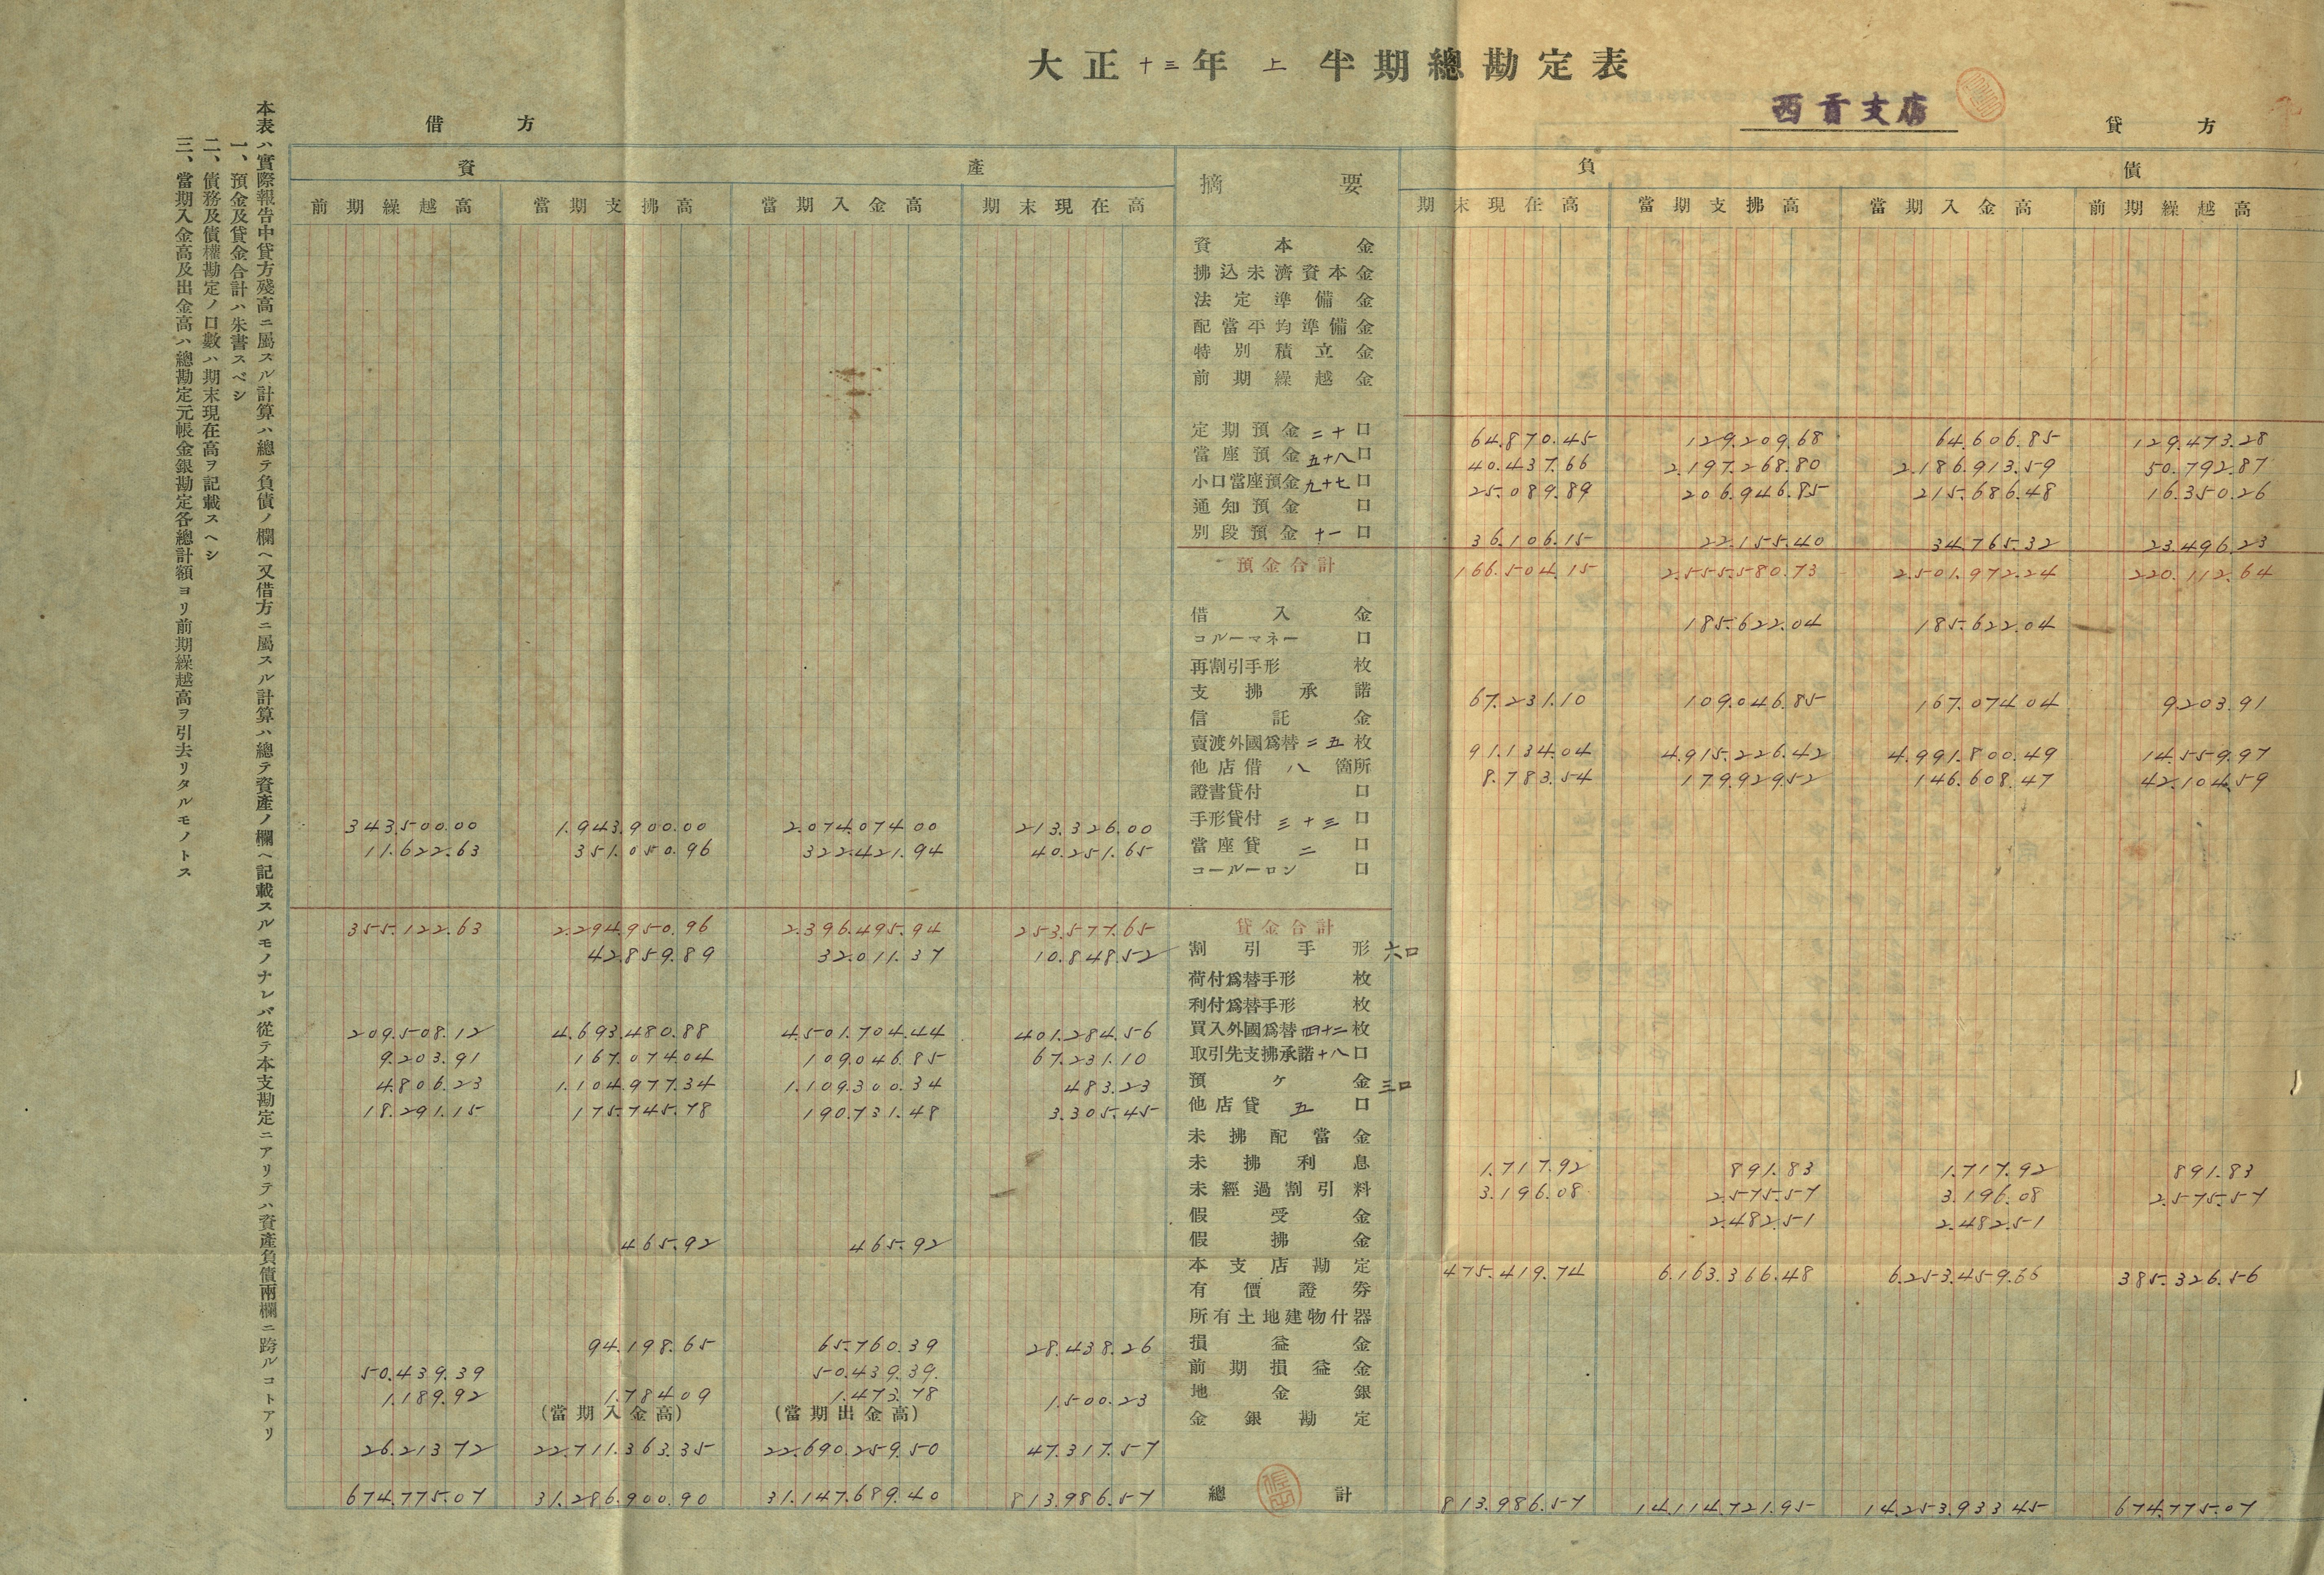 大正十三年上半期總勘定表
西貢支店
借方
貸方
資產
摘要
負債
前期繰越高 當期支拂高 當期入金高 期末現在高 期末現在高 當期支拂高 當期入金高 前期繰越高
資本金
拂込未濟資本金
法定準備金
配當平均準備金
特別積立金
前期繰越金
定期預金 二十口 64.870.45 129.209.68 64.606.85 129.473.28
當座預金 五十八口 40.437.66 2.197.268.80 2.186.913.59 50.792.87
小口當座預金 九十七口 25.089.89 206.946.85 215.686.48 16.350.26
通知預金 口
別段預金 十一口 36.106.15 22.155.40 34.765.32 23.496.23
預金合計 166.504.15 2.555.580.73 2.501.972.24 220.112.64
借入金 185.622.04 185.622.04
コルーマネー 口
再割引手形 枚
支拂承諾 67.231.10 109.046.85 167.074.04 9.203.91
信託金
賣渡外國爲替 二五枚 91.134.04 4.915.226.42 4.991.800.49 14.559.97
他店借 八箇所 8.783.54 179.929.52 146.608.47 42.104.59
證書貸付 口
343.500.00 1.943.900.00 2.074.074.00 213.326.00 手形貸付 三十三口
11.622.63 351.050.96 322.421.94 40.251.65 當座貸 二口
コールーロン 口
355.122.63 2.294.950.96 2.396.495.94 253.577.65 貸金合計
42.859.89 32.011.37 10.848.52 割引手形 六口
荷付爲替手形 枚
利付爲替手形 枚
209.508.12 4.693.480.88 4.501.704.44 401.284.56 買入外國爲替 四十二枚
9.203.91 167.074.04 109.046.85 67.231.10 取引先支拂承諾 十八口
4.806.23 1.104.977.34 1.109.300.34 483.23 預ケ金 三口
18.291.15 175.745.78 190.731.48 3.305.45 他店貸 五口
未拂配當金
未拂利息 1.717.92 891.83 1.717.92 891.83
未經過割引料 3.196.08 2.575.57 3.196.08 2.575.57
假受金 2.482.51 2.482.51
465.92 465.92 假拂金
本支店勘定 475.419.74 6.163.366.48 6.253.459.66 385.326.56
有價證券
所有土地建物什器
94.198.65 65.760.39 28.438.26 損益金
50.439.39 50.439.39. 前期損益金
1.189.92 1.784.09 1.473.78 1.500.23 地金銀
(當期入金高) (當期出金高) 金銀勘定
26.213.72 22.711.363.35 22.690.259.50 47.317.57
674.775.07 31.286.900.90 31.147.689.40 813.986.57 總計 813.986.57 14.114.721.95 14.253.933.45 674.775.07
本表ハ實際報告中貸方殘高ニ屬スル計算ハ總テ負債ノ欄ヘ又借方ニ屬スル計算ハ總テ資產ノ欄ヘ記載スルモノナレバ從テ本支勘定ニアリテハ資產負債兩欄ニ跨ルコトアリ
一、預金及貸金合計ハ朱書スベシ
二、債務及債權勘定ノ口數ハ期末現在高ヲ記載スヘシ
三、當期入金高及出金高ハ總勘定元帳金銀勘定各總計額ヨリ前期繰越高ヲ引去リタルモノトス